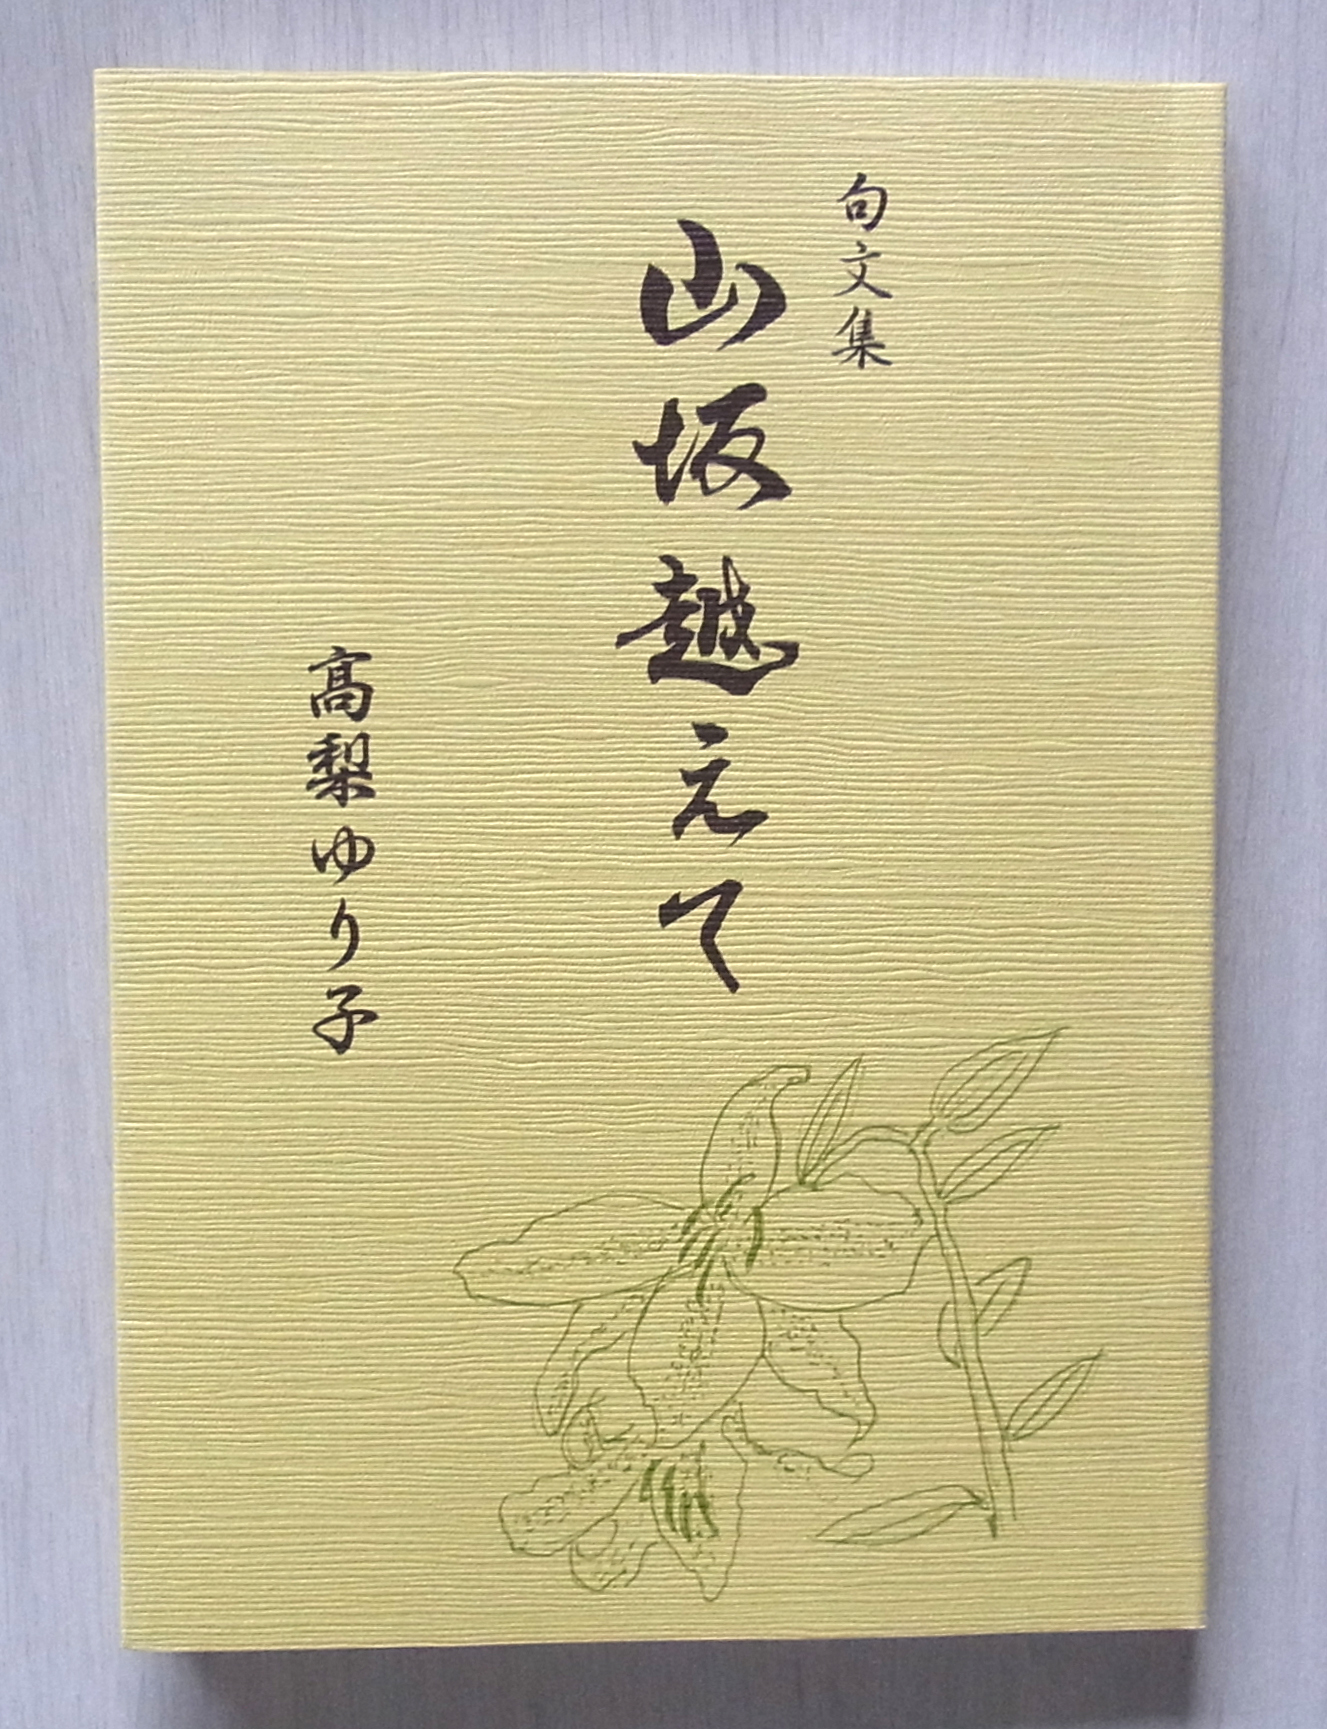 句文集
山坂越えて
髙梨ゆり子